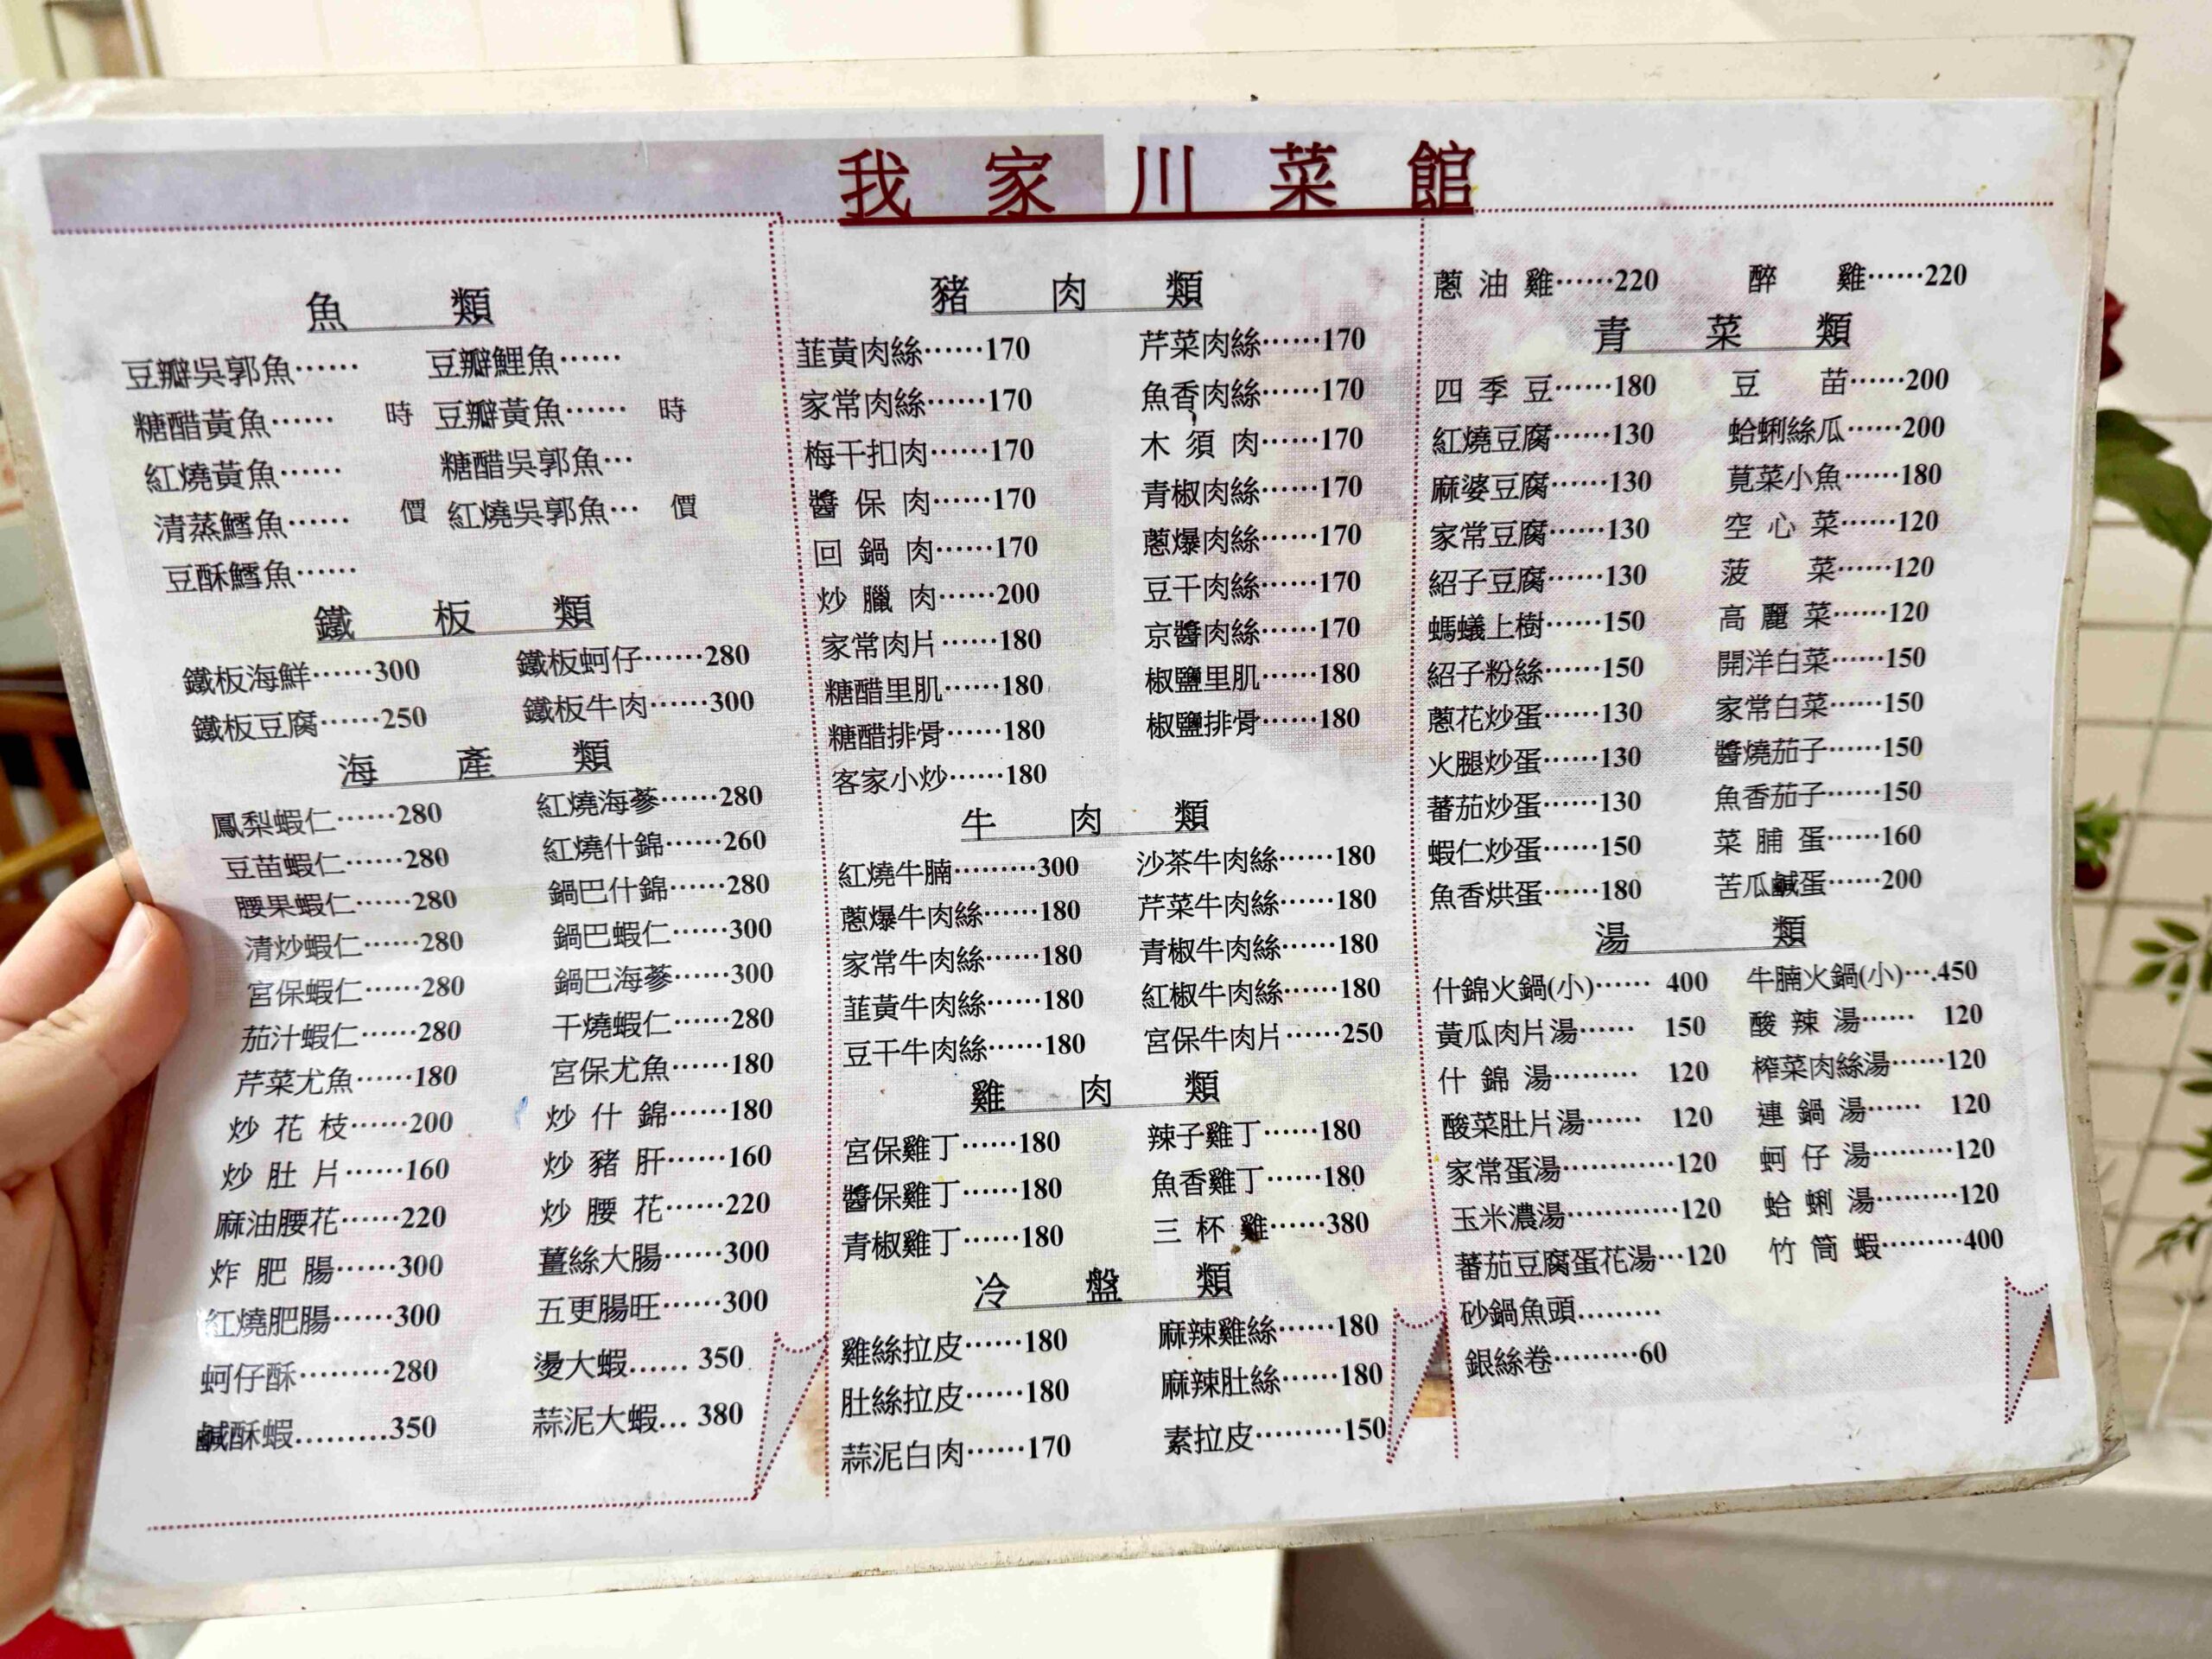 我家川菜館
魚類
豆瓣吳郭魚…… 豆瓣鯉魚……
糖醋黃魚…… 時 豆瓣黃魚…… 時
紅燒黃魚…… 糖醋吳郭魚…
清蒸鱈魚…… 價 紅燒吳郭魚… 價
豆酥鱈魚……
鐵板類
鐵板海鮮……300 鐵板蚵仔……280
鐵板豆腐……250 鐵板牛肉……300
海產類
鳳梨蝦仁……280 紅燒海蔘……280
豆苗蝦仁……280 紅燒什錦……260
腰果蝦仁……280 鍋巴什錦……280
清炒蝦仁……280 鍋巴蝦仁……300
宮保蝦仁……280 鍋巴海蔘……300
茄汁蝦仁……280 干燒蝦仁……280
芹菜尤魚……180 宮保尤魚……180
炒花枝……200 炒什錦……180
炒肚片……160 炒豬肝……160
麻油腰花……220 炒腰花……220
炸肥腸……300 薑絲大腸……300
紅燒肥腸……300 五更腸旺……300
蚵仔酥………280 燙大蝦…… 350
鹹酥蝦………350 蒜泥大蝦… 380
豬肉類
韮黃肉絲……170 芹菜肉絲……170
家常肉絲……170 魚香肉絲……170
梅干扣肉……170 木須肉……170
醬保肉……170 青椒肉絲……170
回鍋肉……170 蔥爆肉絲……170
炒臘肉……200 豆干肉絲……170
家常肉片……180 京醬肉絲……170
糖醋里肌……180 椒鹽里肌……180
糖醋排骨……180 椒鹽排骨……180
客家小炒……180
牛肉類
紅燒牛腩………300 沙茶牛肉絲……180
蔥爆牛肉絲……180 芹菜牛肉絲……180
家常牛肉絲……180 青椒牛肉絲……180
韮黃牛肉絲……180 紅椒牛肉絲……180
豆干牛肉絲……180 宮保牛肉片……250
雞肉類
宮保雞丁……180 辣子雞丁……180
醬保雞丁……180 魚香雞丁……180
青椒雞丁……180 三杯雞……380
冷盤類
雞絲拉皮……180 麻辣雞絲……180
肚絲拉皮……180 麻辣肚絲……180
蒜泥白肉……170 素拉皮………150
蔥油雞……220 醉雞……220
青菜類
四季豆……180 豆苗……200
紅燒豆腐……130 蛤蜊絲瓜……200
麻婆豆腐……130 莧菜小魚……180
家常豆腐……130 空心菜……120
紹子豆腐……130 菠菜……120
螞蟻上樹……150 高麗菜……120
紹子粉絲……150 開洋白菜……150
蔥花炒蛋……130 家常白菜……150
火腿炒蛋……130 醬燒茄子……150
蕃茄炒蛋……130 魚香茄子……150
蝦仁炒蛋……150 菜脯蛋……160
魚香烘蛋……180 苦瓜鹹蛋……200
湯類
什錦火鍋(小)…… 400 牛腩火鍋(小)….450
黃瓜肉片湯…… 150 酸辣湯…… 120
什錦湯……… 120 榨菜肉絲湯……120
酸菜肚片湯…… 120 連鍋湯…… 120
家常蛋湯…………120 蚵仔湯………120
玉米濃湯…………120 蛤蜊湯………120
蕃茄豆腐蛋花湯…120 竹筒蝦………400
砂鍋魚頭………
銀絲卷………60